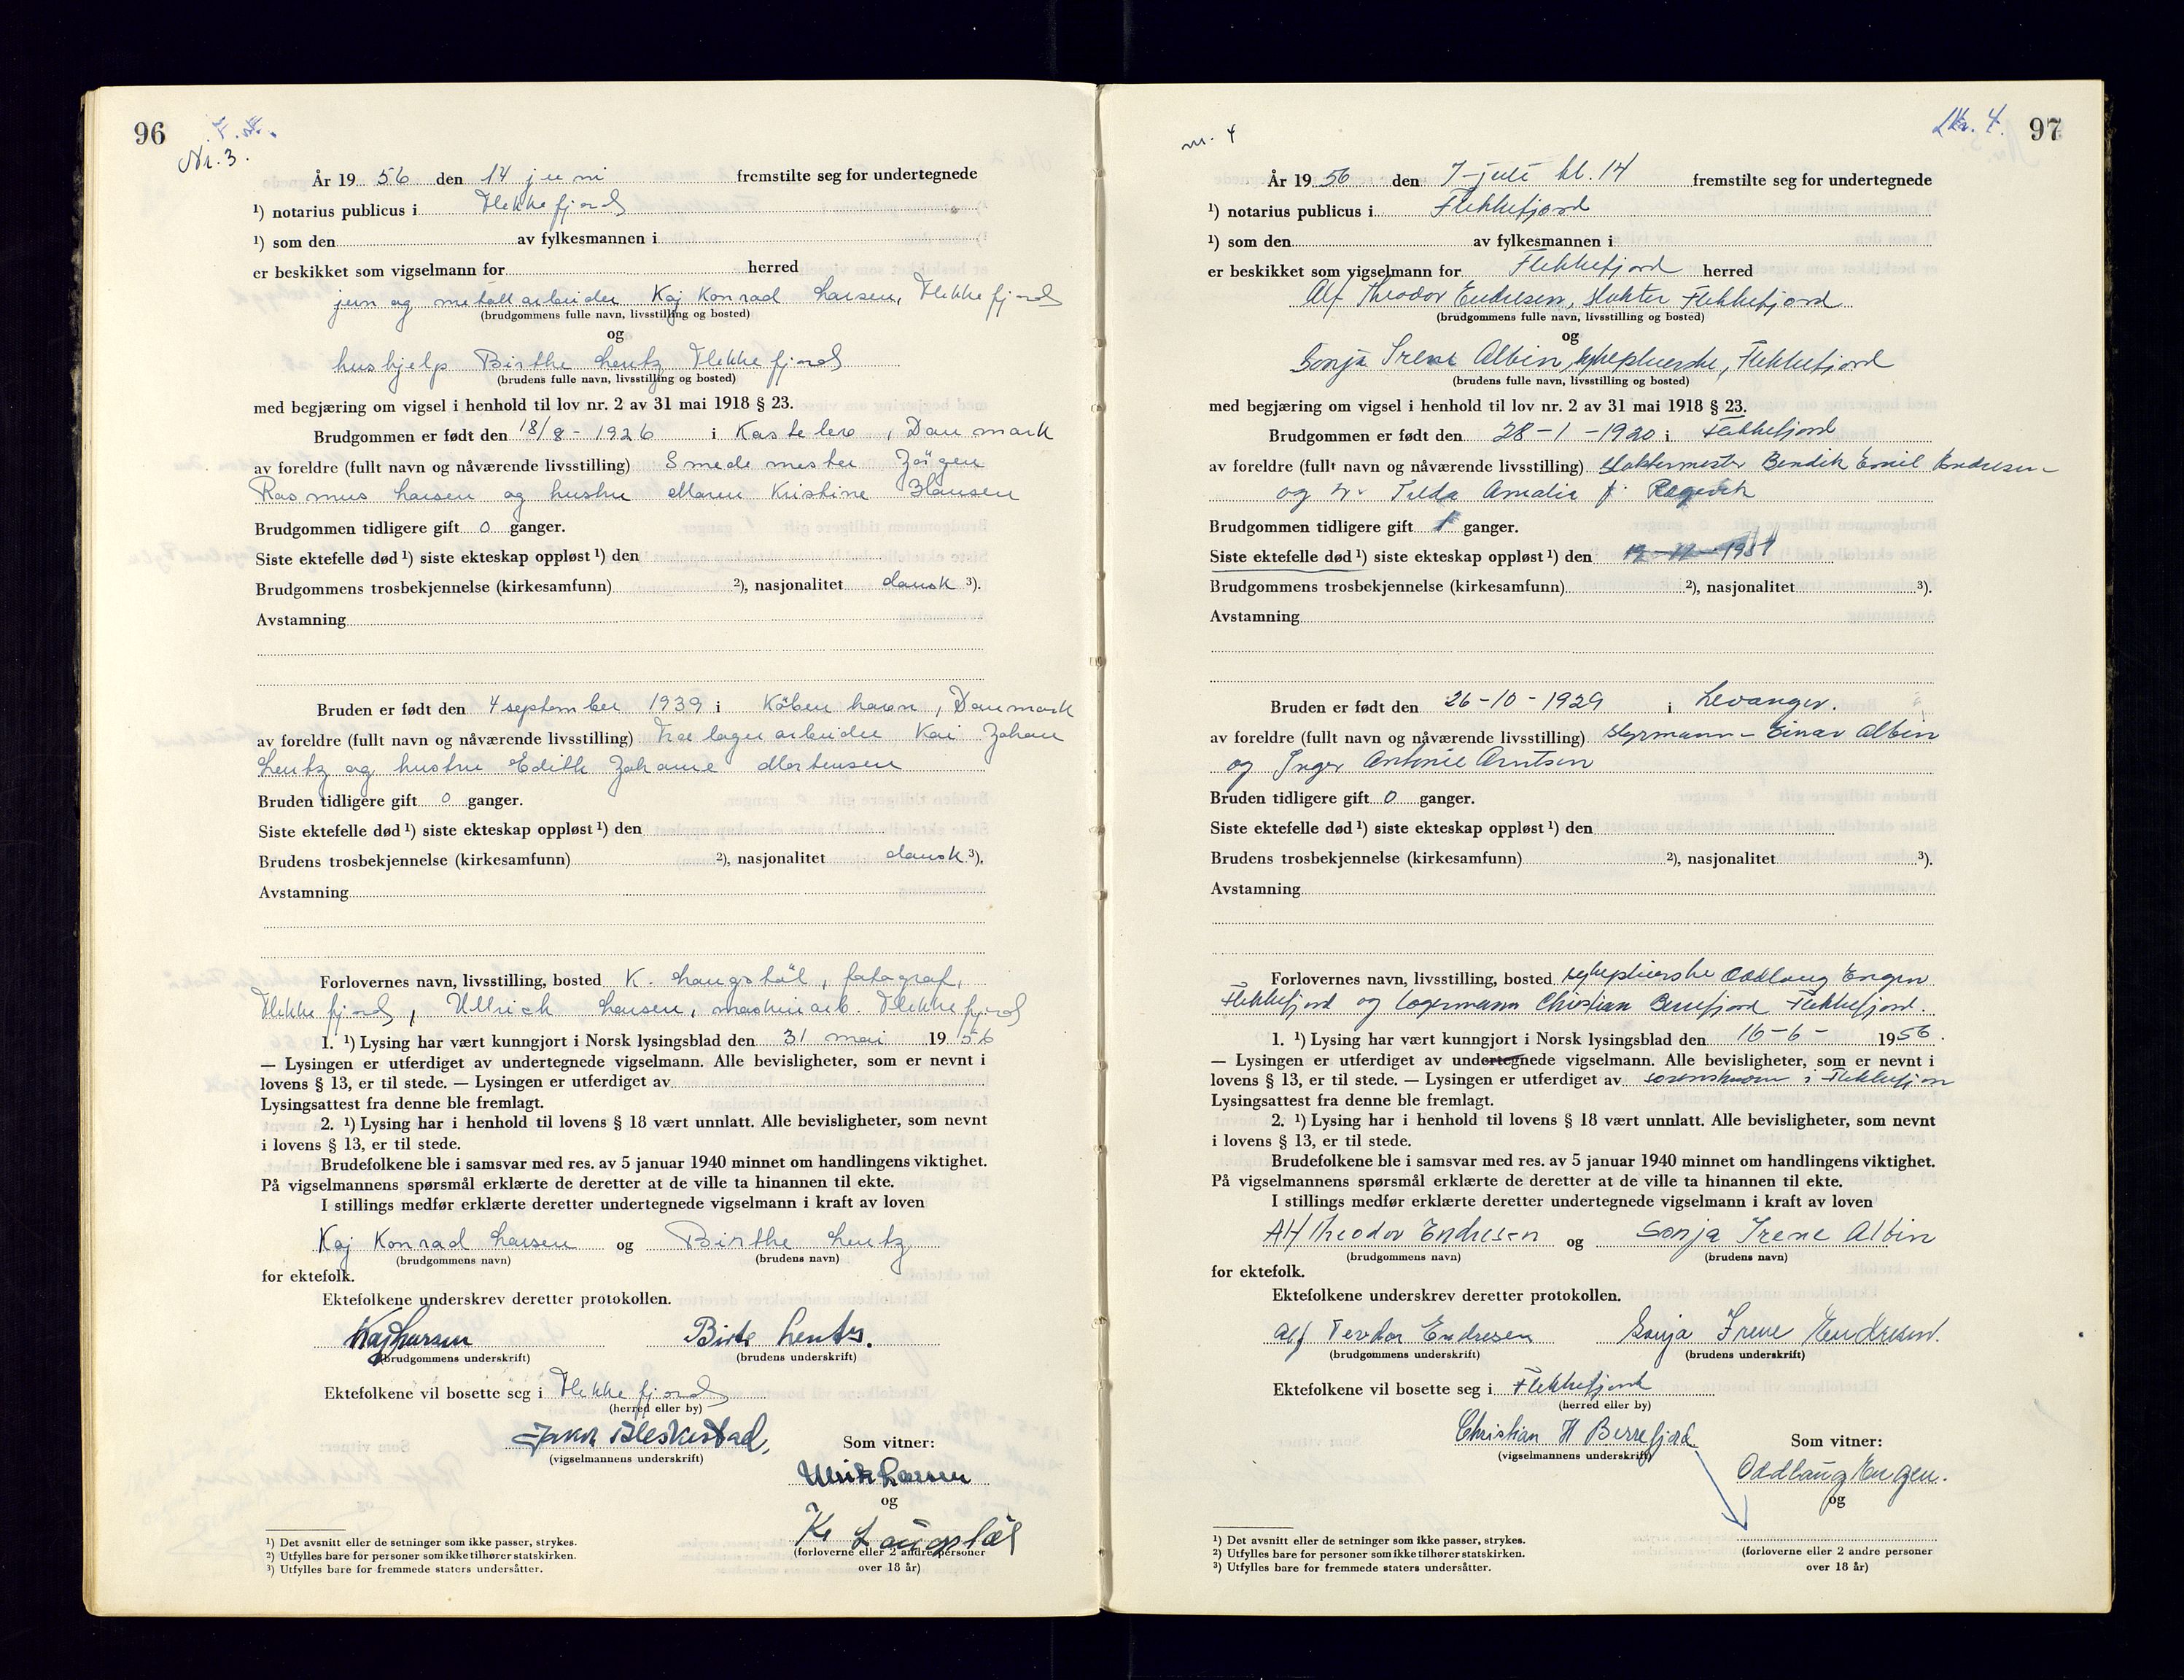 96
Nr. 3.
År 19 56 den 14 juni fremstilte seg for undertegnede
¹) notarius publicus i Flekkefjord
¹) som den av fylkesmannen i
er beskikket som vigselmann for herred
jern og metallarbeider Kaj Konrad Larsen, Flekkefjord
(brudgommens fulle navn, livsstilling og bosted)
og
hushjelp Birthe Lentz Flekkefjord
(brudens fulle navn, livsstilling og bosted)
med begjæring om vigsel i henhold til lov nr. 2 av 31 mai 1918 § 23.
Brudgommen er født den 18/8 - 1926 i Kastelero, Danmark
av foreldre (fullt navn og nåværende livsstilling) Smedemester Jörgen
Rasmus Larsen og hustru Maren Kristine Hansen
Brudgommen tidligere gift 0 ganger.
Siste ektefelle død ¹) siste ekteskap oppløst ¹) den
Brudgommens trosbekjennelse (kirkesamfunn) ²), nasjonalitet dansk ³).
Avstamning
Bruden er født den 4 september 1939 i Köbenhavn, Danmark
av foreldre (fullt navn og nåværende livsstilling) Træ lagerarbeider Kai Johan
Lentz og hustru Edith Johanne Mortensen
Bruden tidligere gift 0 ganger.
Siste ektefelle død ¹) siste ekteskap oppløst ¹) den
Brudens trosbekjennelse (kirkesamfunn) ²), nasjonalitet dansk ³).
Avstamning
Forlovernes navn, livsstilling, bosted K. Langstöl, fotograf,
Flekkefjord, Ullrich Larsen, maskinarb. Flekkefjord
1. ¹) Lysing har vært kunngjort i Norsk lysingsblad den 31 mai 19 56
— Lysingen er utferdiget av undertegnede vigselmann. Alle bevisligheter, som er nevnt i
lovens § 13, er til stede. — Lysingen er utferdiget av
Lysingsattest fra denne ble fremlagt.
2. ¹) Lysing har i henhold til lovens § 18 vært unnlatt. Alle bevisligheter, som nevnt
i lovens § 13, er til stede.
Brudefolkene ble i samsvar med res. av 5 januar 1940 minnet om handlingens viktighet.
På vigselmannens spørsmål erklærte de deretter at de ville ta hinannen til ekte.
I stillings medfør erklærte deretter undertegnede vigselmann i kraft av loven
Kaj Konrad Larsen og Birthe Lentz
(brudgommens navn) (brudens navn)
for ektefolk.
Ektefolkene underskrev deretter protokollen.
Kaj Larsen Birte Lentz.
(brudgommens underskrift) (brudens underskrift)
Ektefolkene vil bosette seg i Flekkefjord
(herred eller by)
Jakob Bleskestad,
(vigselmannens underskrift)
Som vitner:
Ulrik Larsen
og
K. Langstöl
(forloverne eller 2 andre personer
over 18 år)
¹) Det avsnitt eller de setninger som ikke passer, strykes.
²) Utfylles bare for personer som ikke tilhører statskirken.
³) Utfylles bare for fremmede staters undersåtter.
nr. 4
Nr. 4. 97
År 19 56 den 7-juli kl. 14 fremstilte seg for undertegnede
¹) notarius publicus i Flekkefjord
¹) som den av fylkesmannen i
er beskikket som vigselmann for Flekkefjord herred
Alf Theodor Endresen, slakter Flekkefjord
(brudgommens fulle navn, livsstilling og bosted)
og
Sonja Irene Albin, sykepleierske, Flekkefjord
(brudens fulle navn, livsstilling og bosted)
med begjæring om vigsel i henhold til lov nr. 2 av 31 mai 1918 § 23.
Brudgommen er født den 28-1-1920 i Flekkefjord
av foreldre (fullt navn og nåværende livsstilling) slaktermester Bendik Emil Endresen
og h. Tilda Amalie f.
Brudgommen tidligere gift 1 ganger.
Siste ektefelle død ¹) siste ekteskap oppløst ¹) den
Brudgommens trosbekjennelse (kirkesamfunn) ²), nasjonalitet ³).
Avstamning
Bruden er født den 26-10-1929 i Levanger.
av foreldre (fullt navn og nåværende livsstilling) Styrmann - Einar Albin
og Inger Antonie Arntsen
Bruden tidligere gift 0 ganger.
Siste ektefelle død ¹) siste ekteskap oppløst ¹) den
Brudens trosbekjennelse (kirkesamfunn) ²), nasjonalitet ³).
Avstamning
Forlovernes navn, livsstilling, bosted sykepleierske Oddlaug Engen
Flekkefjord og lagermann Christian Berrefjord Flekkefjord.
1. ¹) Lysing har vært kunngjort i Norsk lysingsblad den 16-6- 1956.
— Lysingen er utferdiget av undertegnede vigselmann. Alle bevisligheter, som er nevnt i
lovens § 13, er til stede. — Lysingen er utferdiget av sorenskriveren i Flekkefjord
Lysingsattest fra denne ble fremlagt.
2. ¹) Lysing har i henhold til lovens § 18 vært unnlatt. Alle bevisligheter, som nevnt
i lovens § 13, er til stede.
Brudefolkene ble i samsvar med res. av 5 januar 1940 minnet om handlingens viktighet.
På vigselmannens spørsmål erklærte de deretter at de ville ta hinannen til ekte.
I stillings medfør erklærte deretter undertegnede vigselmann i kraft av loven
Alf Theodor Endresen og Sonja Irene Albin
(brudgommens navn) (brudens navn)
for ektefolk.
Ektefolkene underskrev deretter protokollen.
Alf Teodor Endresen Sonja Irene Endresen.
(brudgommens underskrift) (brudens underskrift)
Ektefolkene vil bosette seg i Flekkefjord
(herred eller by)
Christian H Berrefjord
(vigselmannens underskrift)
Som vitner:
Oddlaug Engen.
og
(forloverne eller 2 andre personer
over 18 år)
¹) Det avsnitt eller de setninger som ikke passer, strykes.
²) Utfylles bare for personer som ikke tilhører statskirken.
³) Utfylles bare for fremmede staters undersåtter.